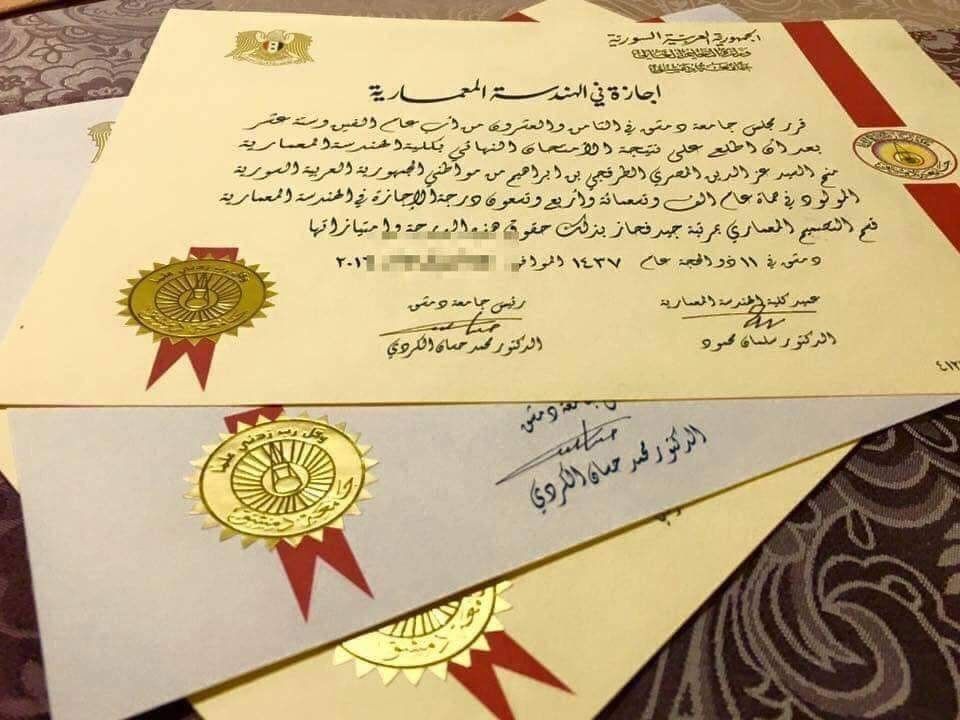 الجمهورية العربية السورية
اجازة في الهندسة المعمارية
قرر مجلس جامعة دمشق في الثامن والعشرون من آب عام الفين وستة عشر
بعد ان اطلع على نتيجة الامتحان النهائي بكلية الهندسة المعمارية
منح السيد عز الدين المصري الطرقجي بن ابراهيم من مواطني الجمهورية العربية السورية
المولود في حماة عام الف وتسعمائة وأربع وتسعون درجة الإجازة في الهندسة المعمارية
قسم التصميم المعماري بمرتبة جيد فحاز بذلك حقوق هذه الدرجة وامتيازاتها
دمشق في ١١ ذو الحجة عام ١٤٣٧ الموافق ٢٠١٦
عميد كلية الهندسة المعمارية
الدكتور سلمان محمود
رئيس جامعة دمشق
الدكتور محمد حسان الكردي
وقل رب زدني علما
جامعة دمشق
جامعة دمشق
الدكتور محمد حسان الكردي
وقل رب زدني علما
جامعة دمشق
دمشق